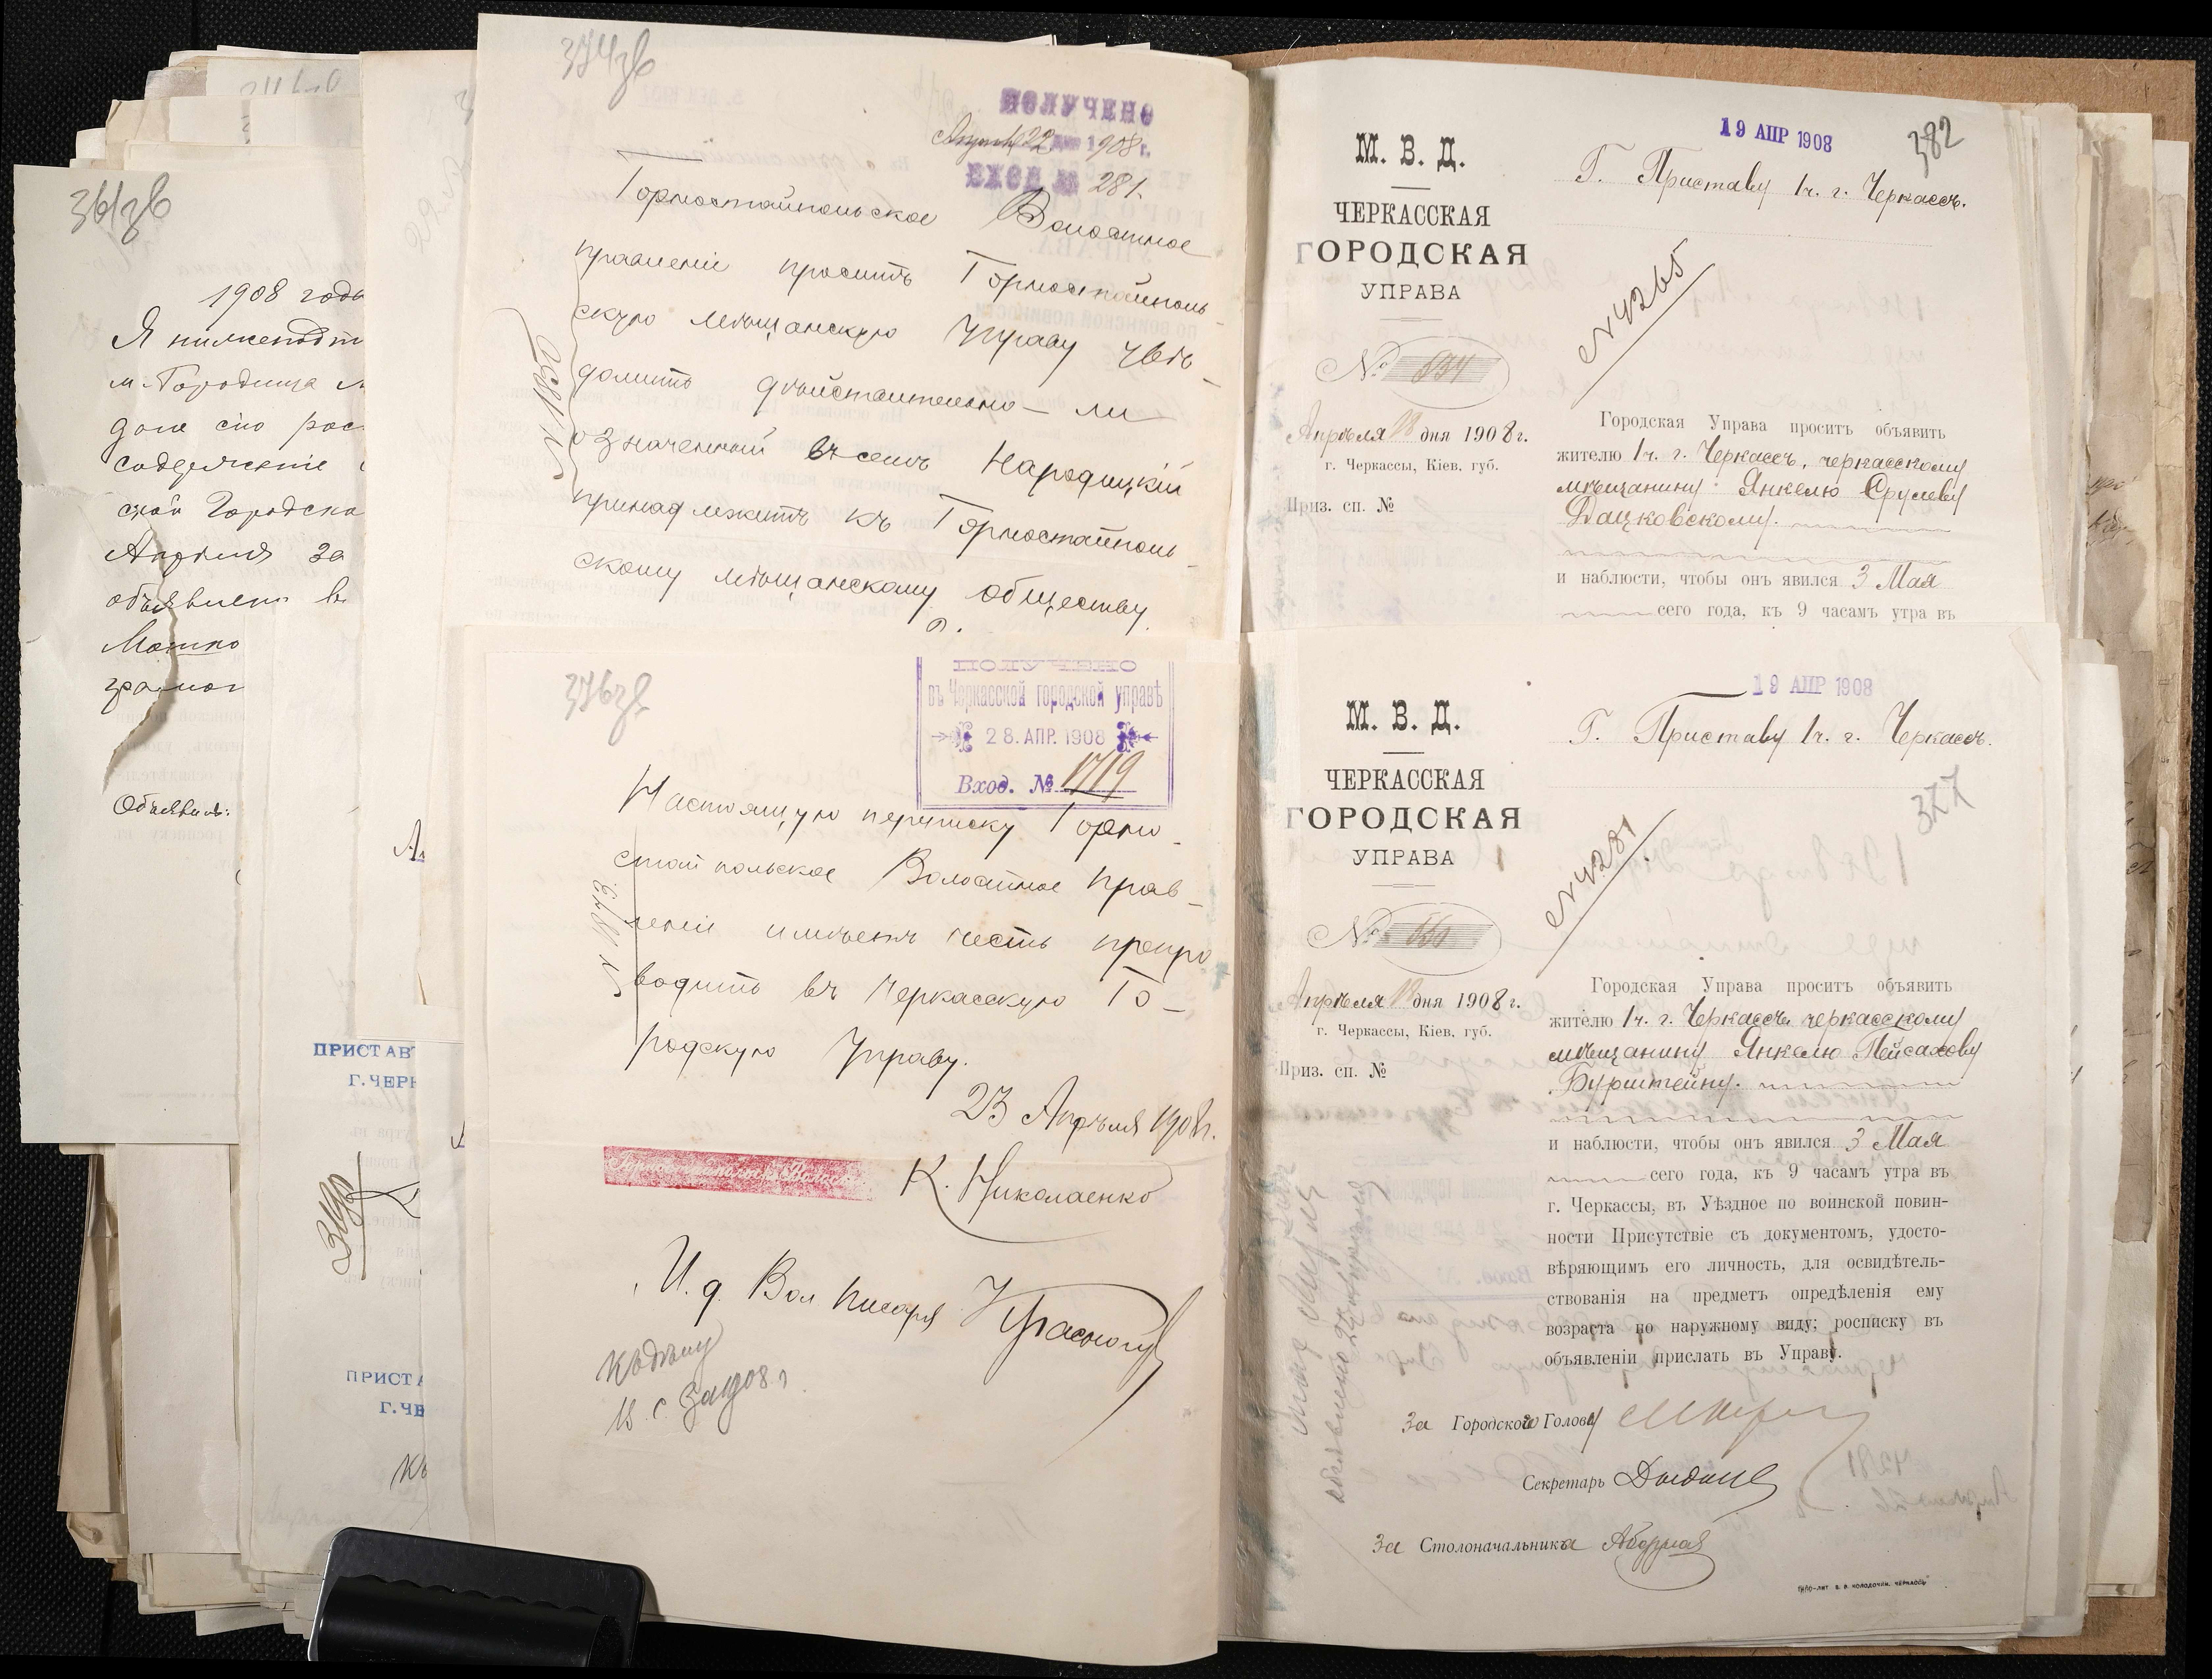 361зв
1908 года
Я нижеподп
м. Городища м
дола сію рос
содержаніе
ской Городско
Апрѣля за
объявлен въ
Мошко
грамот
Объявилъ:
ПРИСТАВ
Г. ЧЕРК
ПРИСТА
Г. ЧЕ
374зв
ПОЛУЧЕНО
Апрѣля 22 дня 1908 г.
ВХОД № 281.
Горностайпольское Волостное
правленіе проситъ Горностайполь-
скую мѣщанскую Управу увѣ-
домить дѣйствительно-ли
означенный въ семъ Народицкій
принадлежитъ къ Горностайполь-
скому мѣщанскому обществу.
№ 1850
376зв
ПОЛУЧЕНО
въ Черкасской городской управѣ
28. АПР. 1908
Вход. № 1719
Настоящую переписку Горно-
стайпольское Волостное Прав-
леніе имѣетъ честь препро
водить въ Черкасскую Го-
родскую Управу.
№ 1873
23 Апрѣля 1908 г.
К. Николаенко
И. д. Вол Писаря
Къ дѣлу
19 АПР 1908
382
М. В. Д.
ЧЕРКАССКАЯ
ГОРОДСКАЯ
УПРАВА
№ 634
Апрѣля 18 дня 1908 г.
г. Черкассы, Кіев. губ.
Приз. сп. №
Г. Приставу 1ч. г. Черкассъ.
№ 4265
Городская Управа проситъ объявить
жителю 1ч. г. Черкассъ, черкасскому
мѣщанину Янкелю Срулеву
Дацковскому.
и наблюсти, чтобы онъ явился 3 Мая
сего года, къ 9 часамъ утра въ
19 АПР 1908
М. В. Д.
ЧЕРКАССКАЯ
ГОРОДСКАЯ
УПРАВА
№
Апрѣля 18 дня 1908 г.
г. Черкассы, Кіев. губ.
Приз. сп. №
Г. Приставу 1ч. г. Черкассъ.
377
№ 4281
Городская Управа проситъ объявить
жителю 1ч. г. Черкассъ черкасскому
мѣщанину Янкелю Пейсахову
Бурштейну.
и наблюсти, чтобы онъ явился 3 Мая
сего года, къ 9 часамъ утра въ
г. Черкассы, въ Уѣздное по воинской повин-
ности Присутствіе съ документомъ, удосто-
вѣряющимъ его личность, для освидѣтель-
ствованія на предметъ опредѣленія ему
возраста по наружному виду; росписку въ
объявленіи прислать въ Управу.
За Городского Голову
Секретарь
За Столоначальника
ТИПО-ЛИТ. В. Р. КОЛОДОЧКИ, ЧЕРКАССЫ